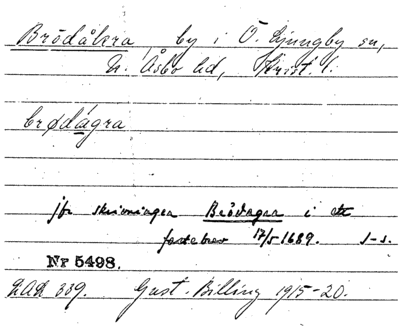 Brödåkra, by i Ö. Ljungby sn,
N. Åsbo hd, Krist. l.
brødágra
jfr skrivningen Brödagra i ett
fastebrev 17/5 1689. J-s.
Nr 5498.
LAL 339. Gust. Billing 1915-20.